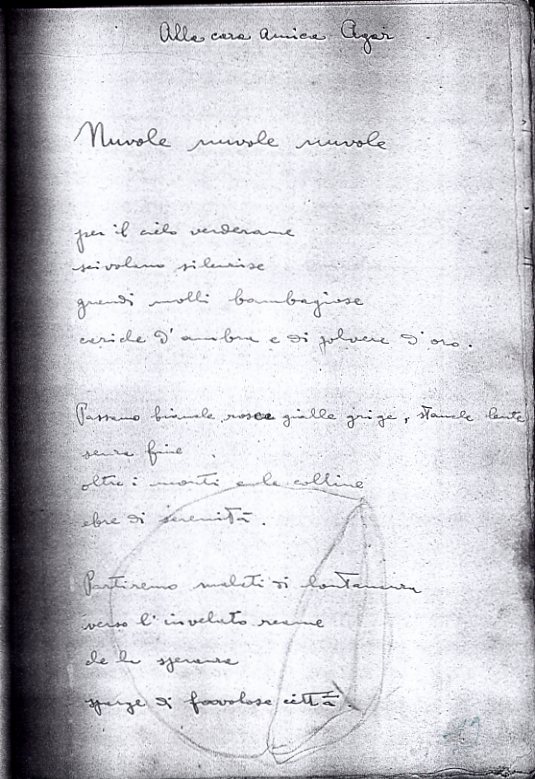 Alla cara amica Agar
Nuvole nuvole nuvole
per il cielo verderame
scivolano silenziose
grandi molli bambagiose
cariche d'ambra e di polvere d'oro.
Passano bianche rosee gialle grige, stanche lente
senza fine
oltre i monti e le colline
ebre di serenità.
Partiremo malati di lontananza
verso l' reame
de la speranza
sparge di favolose città.